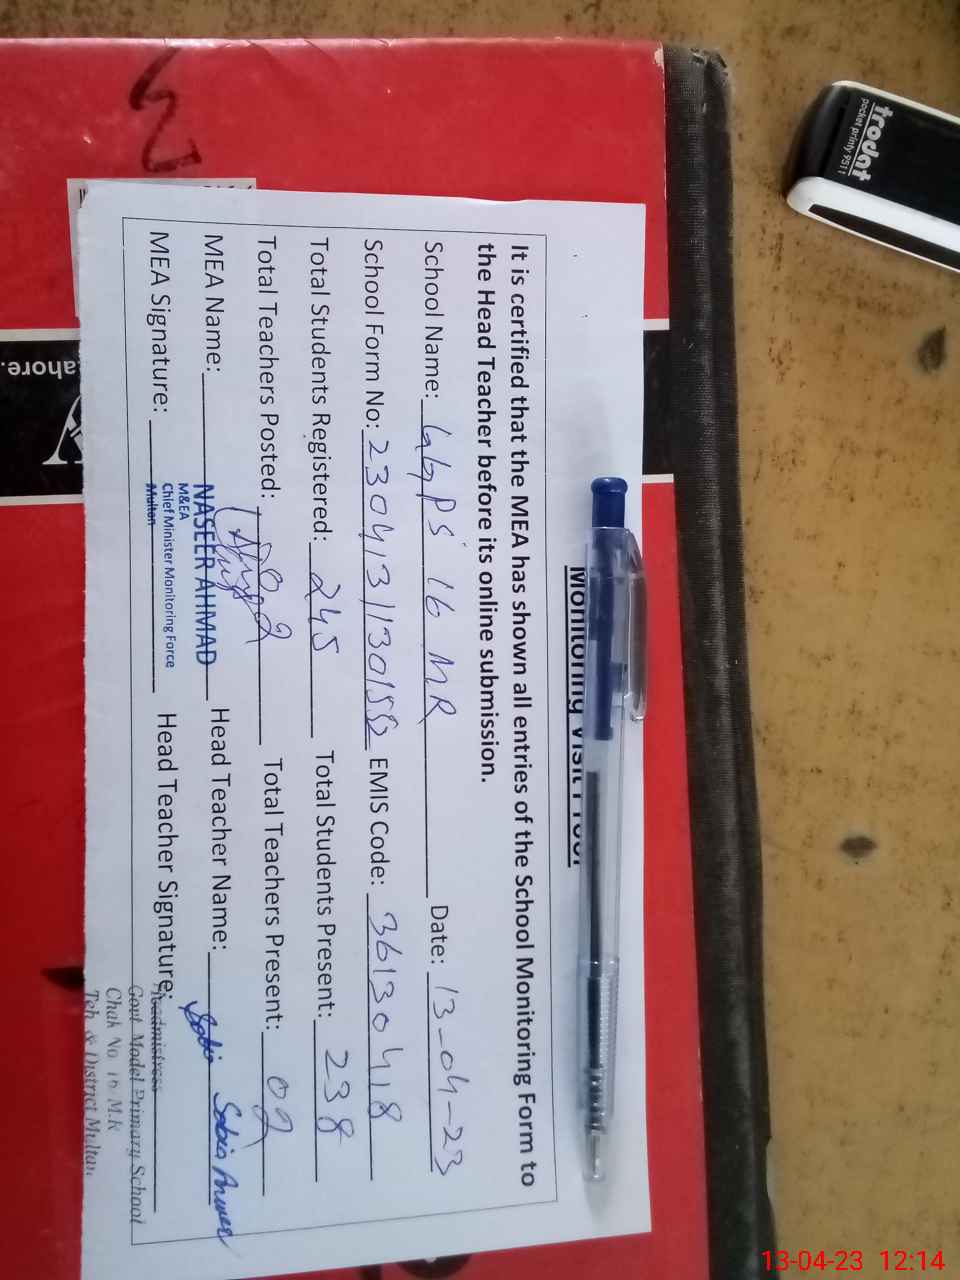 Monitoring Visit Proof
It is certified that the MEA has shown all entries of the School Monitoring Form to
the Head Teacher before its online submission.
School Name: GGPS 16 MR Date: 13-04-23
School Form No: EMIS Code: 36130418
Total Students Registered: 245 Total Students Present: 238
Total Teachers Posted: 02 Total Teachers Present: 02
MEA Name: NASEER AHMAD Head Teacher Name: Sobia
M&EA
Chief Minister Monitoring Force
Multan
MEA Signature: Head Teacher Signature: Sobia
Headmistress
Govt. Model Primary School
Chak No. 16 M.R
Teh & District Multan
trodat
pocket printy 9511
ahore.
13-04-23 12:14